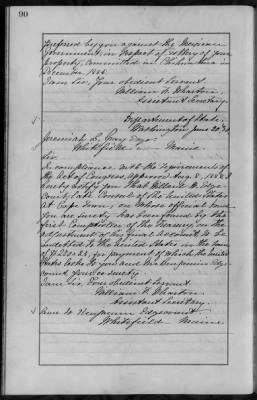 90
preferred by you against the Mexican
Government, in respect of robbery of your
property, committed in Chihuahua in
December 1885.
I am Sir, Your obedient Servant
William F. Wharton,
Assistant Secretary.
Department of State,
Washington June 20,
Jeremiah L. Gray Esqre
Whitefield Maine
Sir
In compliance with the requirements of
the Act of Congress, approved Aug. 8, 1888 I
hereby notify you that William H. Edge-
comb, late Consul of the United States
at Cape Town, on whose official bond
you are surety has been found by the
First Comptroller of the Treasury, on the
adjustment of his final account to be
indebted to the United States in the sum
of for payment of which the United
States looks to you and Mr. Benjamin Edg-
comb, your co surety.
I am Sir Your obedient Servant
William F. Wharton
Assistant Secretary.
Same to Benjamin Edgecomb
Whitefield Maine.